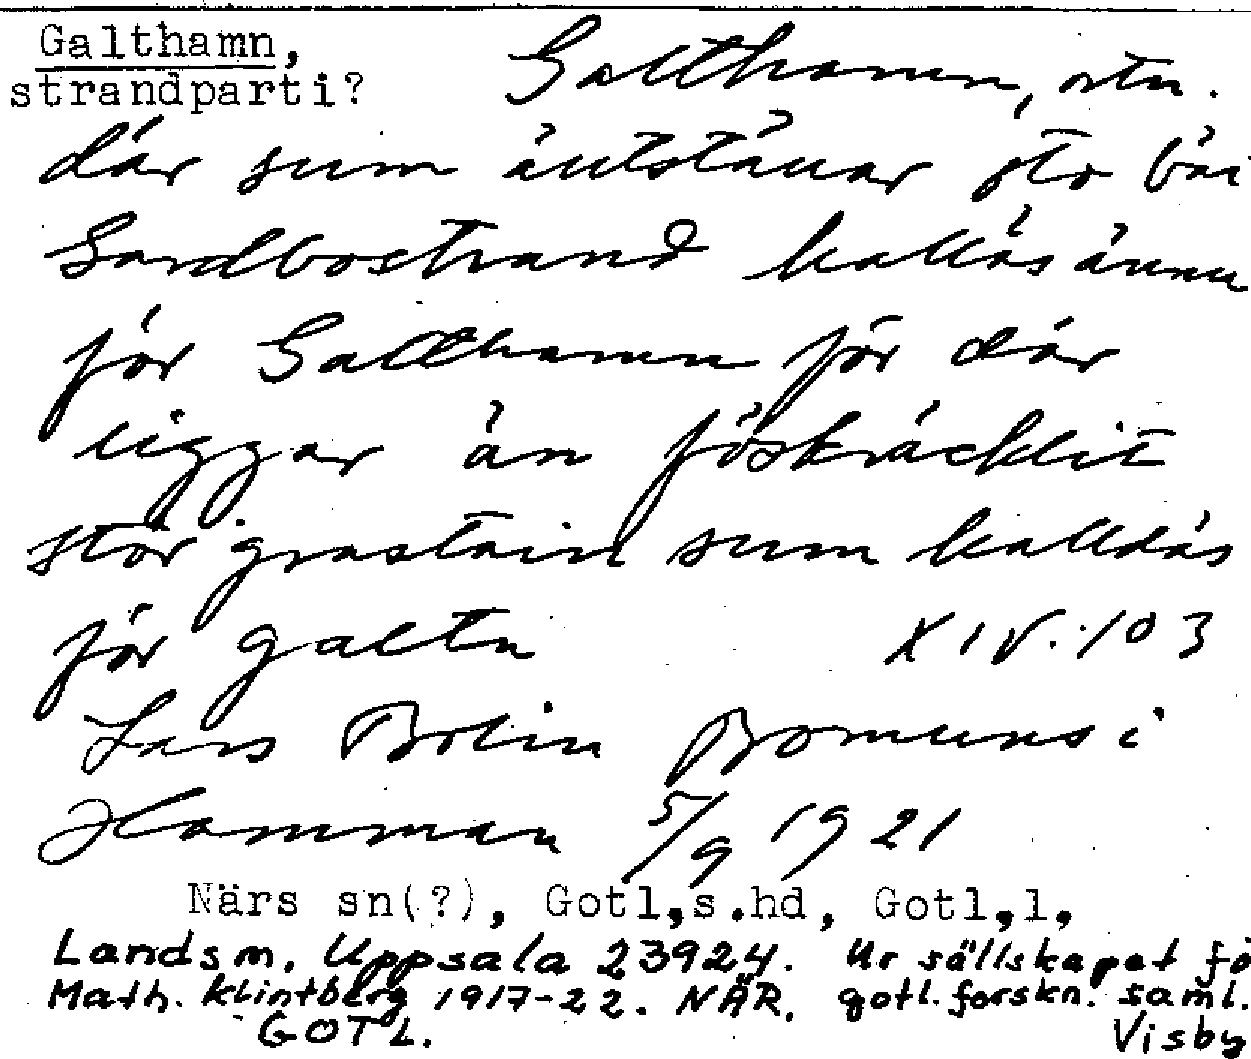 Galthamn, Galthamn, ortn.
strandparti?
där sum äutstäuar sto bäi
Sandbostrand kallas ännu
för Galthamn för där
liggar än föskräcklit
stor grastain sum kalldäs
för galtn XIV.103
Lars Bolin Bomunsi
Hamman 5/9 1921
Närs sn(?), Gotl,s.hd, Gotl,l,
Landsm. Uppsala 23924. Ur sällskapet fö
Math. Klintberg 1917-22. NÄR. gotl. forskn. saml.
GOTL. Visby